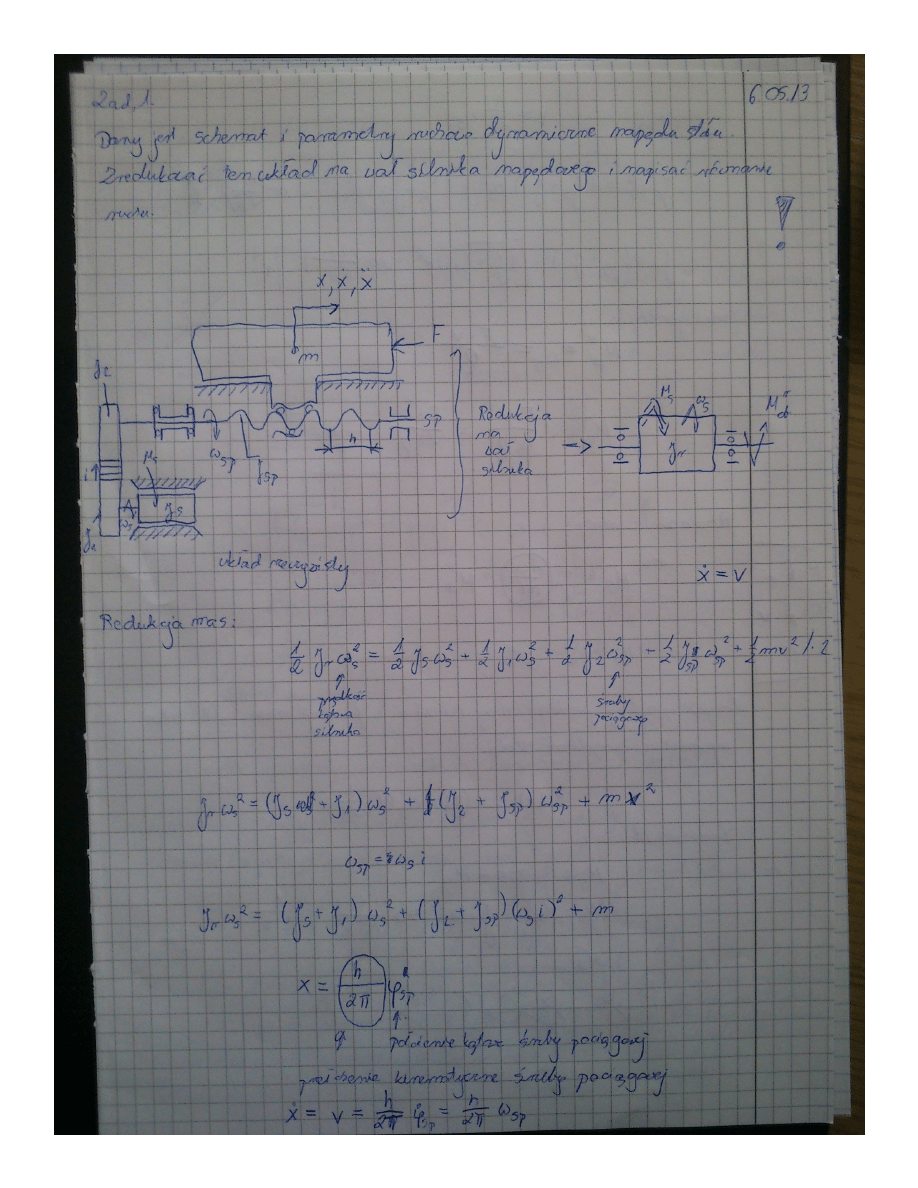 6.05.13
Zad. 1.
Dany jest schemat i parametry ruchowo dynamiczne napędu stołu.
Zredukować ten układ na wał silnika napędowego i napisać równanie
ruchu.
!
x, ẋ, ẍ
F
m
J2
SP
h
ωsp
Jsp
i
Ms
Js
ωs
J1
Redukcja
na
wał
silnika
Ms
ωs
Jr
układ rzeczywisty
ẋ = v
Redukcja mas:
½ Jr ωs² = ½ Js ωs² + ½ J1 ωs² + ½ J2 ωsp² + ½ Jsp ωsp² + ½ mv² /· 2
prędkość
kątowa
silnika
śruby
pociągowej
Jr ωs² = (Js + J1) ωs² + (J2 + Jsp) ωsp² + m v²
ωsp = ωs i
Jr ωs² = (Js + J1) ωs² + (J2 + Jsp)(ωs i)² + m
x = h/2π φsp
położenie kątowe śruby pociągowej
przełożenie kinematyczne śruby pociągowej
ẋ = v = h/2π φ̇sp = h/2π ωsp